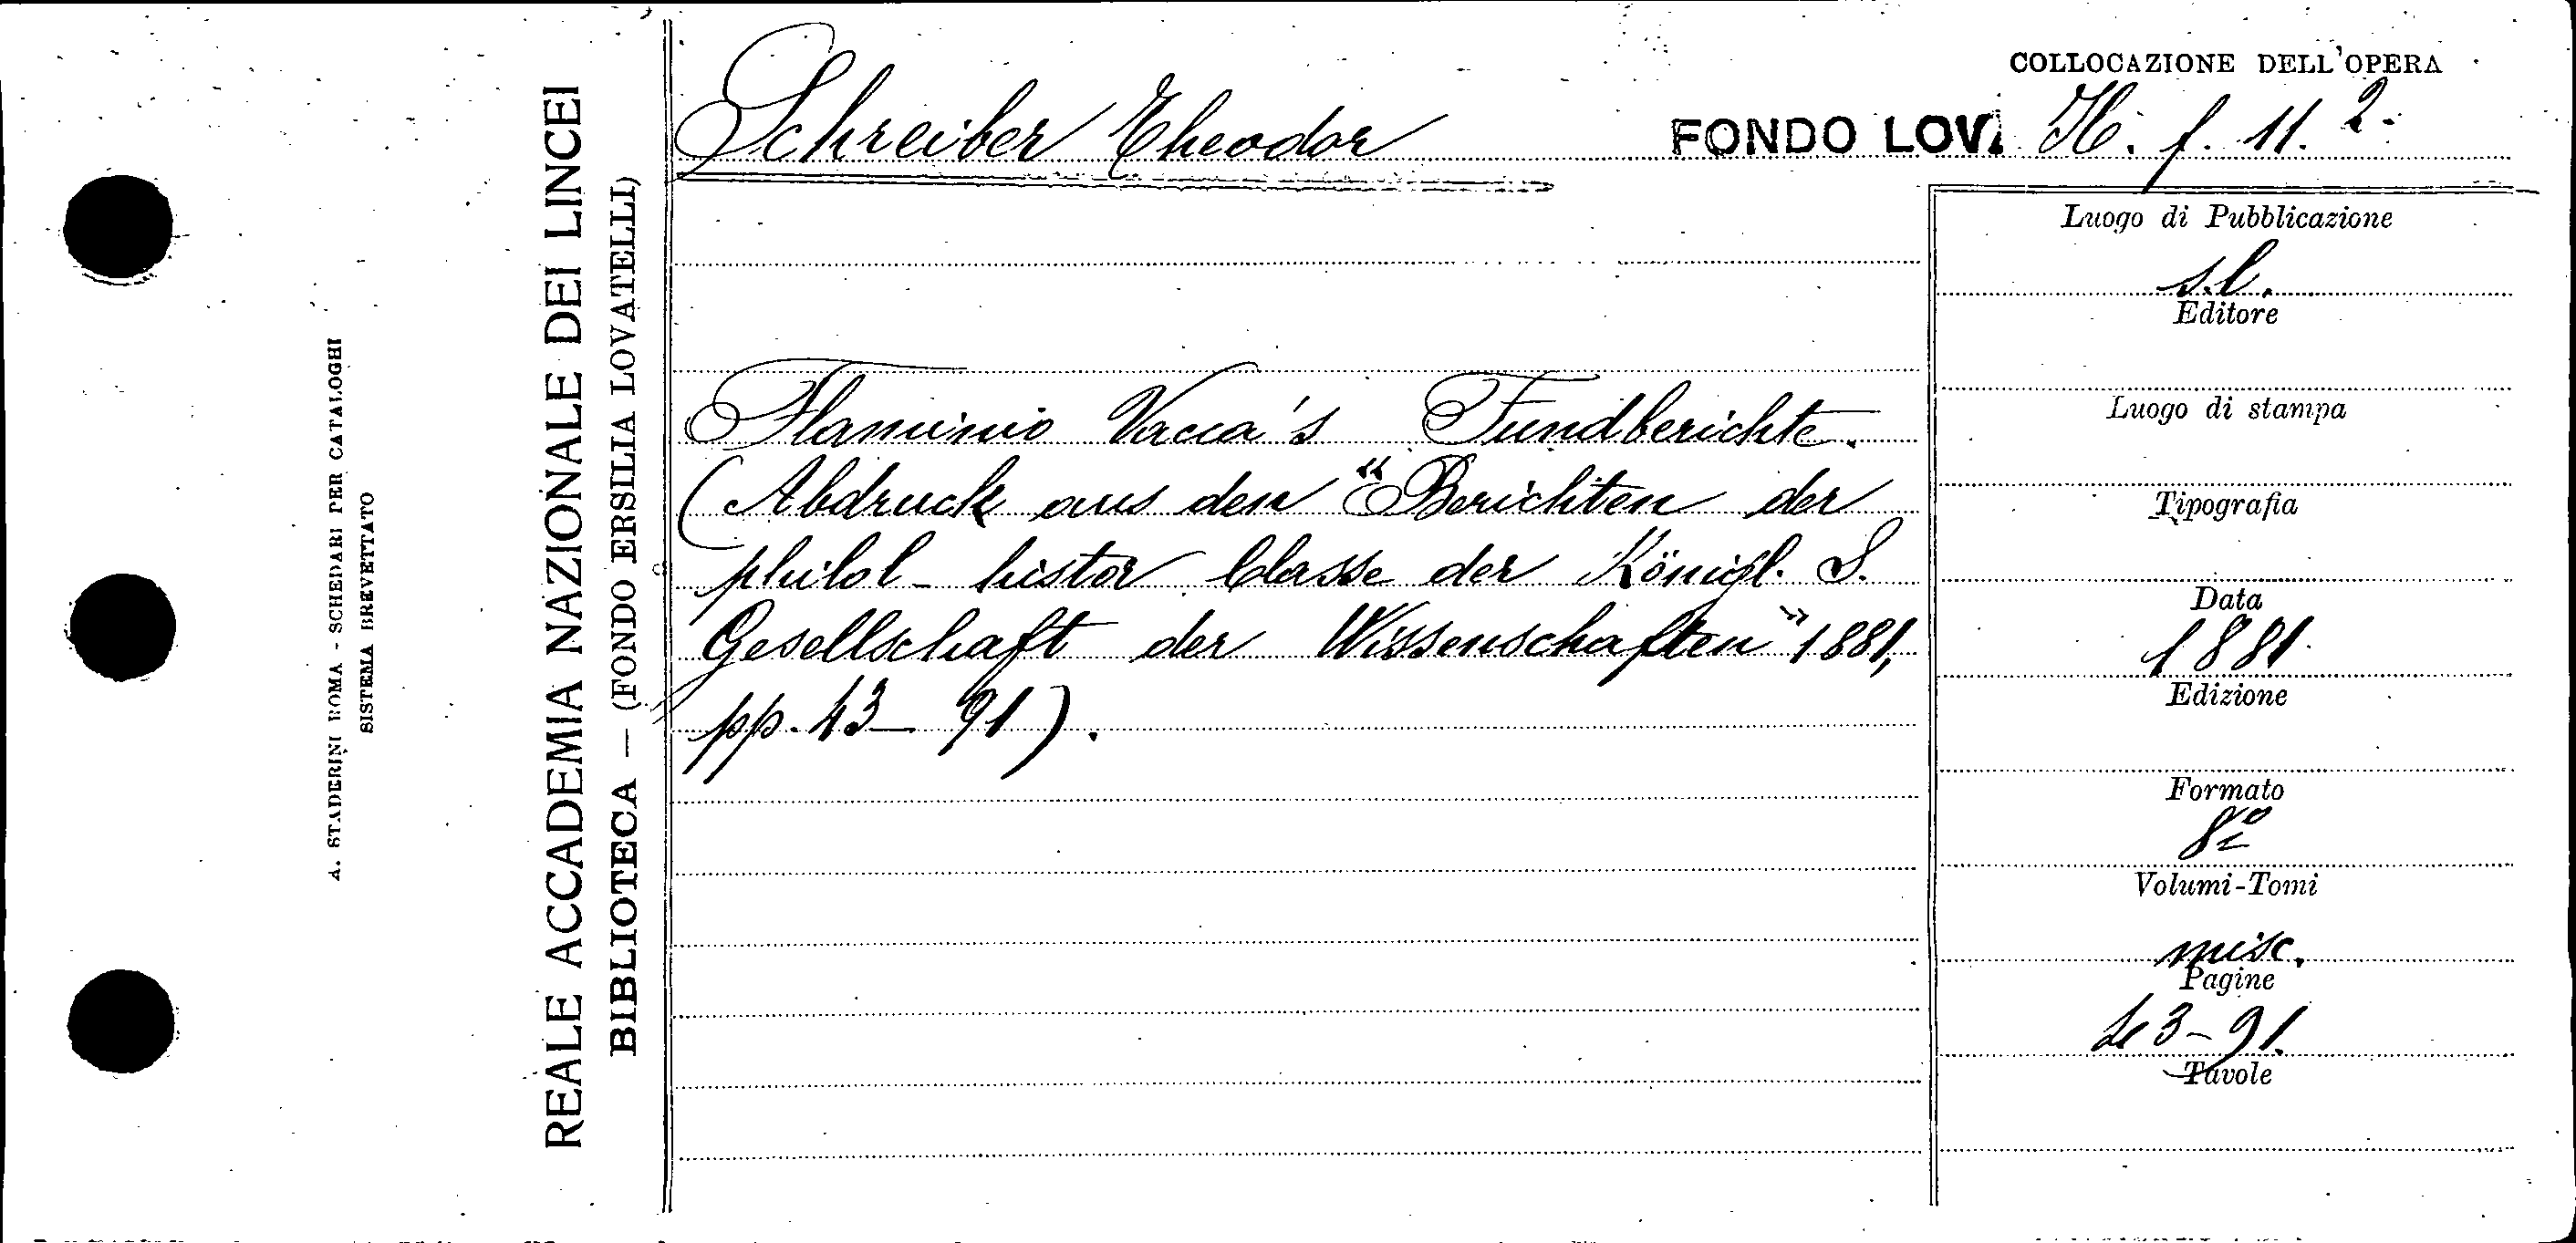 COLLOCAZIONE DELL'OPERA
Schreiber Theodor
FONDO LOV. H. f. 11. 2.
Flaminio Vacca's Fundberichte.
(Abdruck aus den "Berichten der
philol- histor Classe der Königl. S.
Gesellschaft der Wissenschaften" 1881,
pp. 43- 91).
Luogo di Pubblicazione
s.l.
Editore
Luogo di stampa
Tipografia
Data
1881
Edizione
Formato
8º
Volumi-Tomi
misc.
Pagine
43-91.
Tavole
REALE ACCADEMIA NAZIONALE DEI LINCEI
BIBLIOTECA — (FONDO ERSILIA LOVATELLI)
A. STADERINI ROMA - SCHEDARI PER CATALOGHI
SISTEMA BREVETTATO